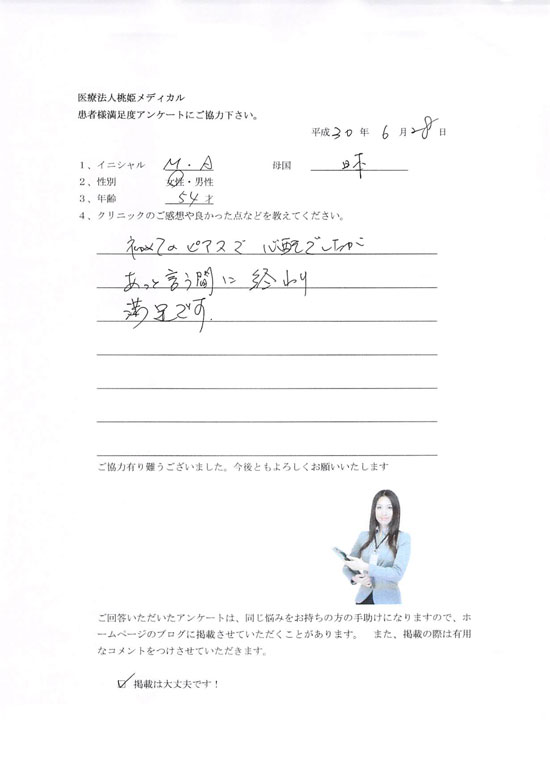 医療法人桃姫メディカル
患者様満足度アンケートにご協力下さい。
平成30年 6月28日
1、イニシャル M・A 母国 日本
2、性別 女性・男性
3、年齢 54才
4、クリニックのご感想や良かった点などを教えてください。
初めてのピアスで 心配でしたが
あっと言う間に 終わり
満足です.
ご協力有り難うございました。今後ともよろしくお願いいたします
ご回答いただいたアンケートは、同じ悩みをお持ちの方の手助けになりますので、ホ
ームページのブログに掲載させていただくことがあります。 また、掲載の際は有用
なコメントをつけさせていただきます。
☑ 掲載は大丈夫です！